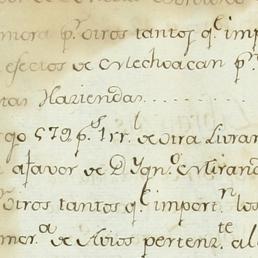 mora p.r otros tantos q.e imp
efectos de Mechoacan p.r
tas Haziendas......
go 579 p.s 1 r.l de otra Livran
afavor de D.n Ygn.o Mirand
otros tantos q.e import.n los
mor.a de Avios pertenz.te al